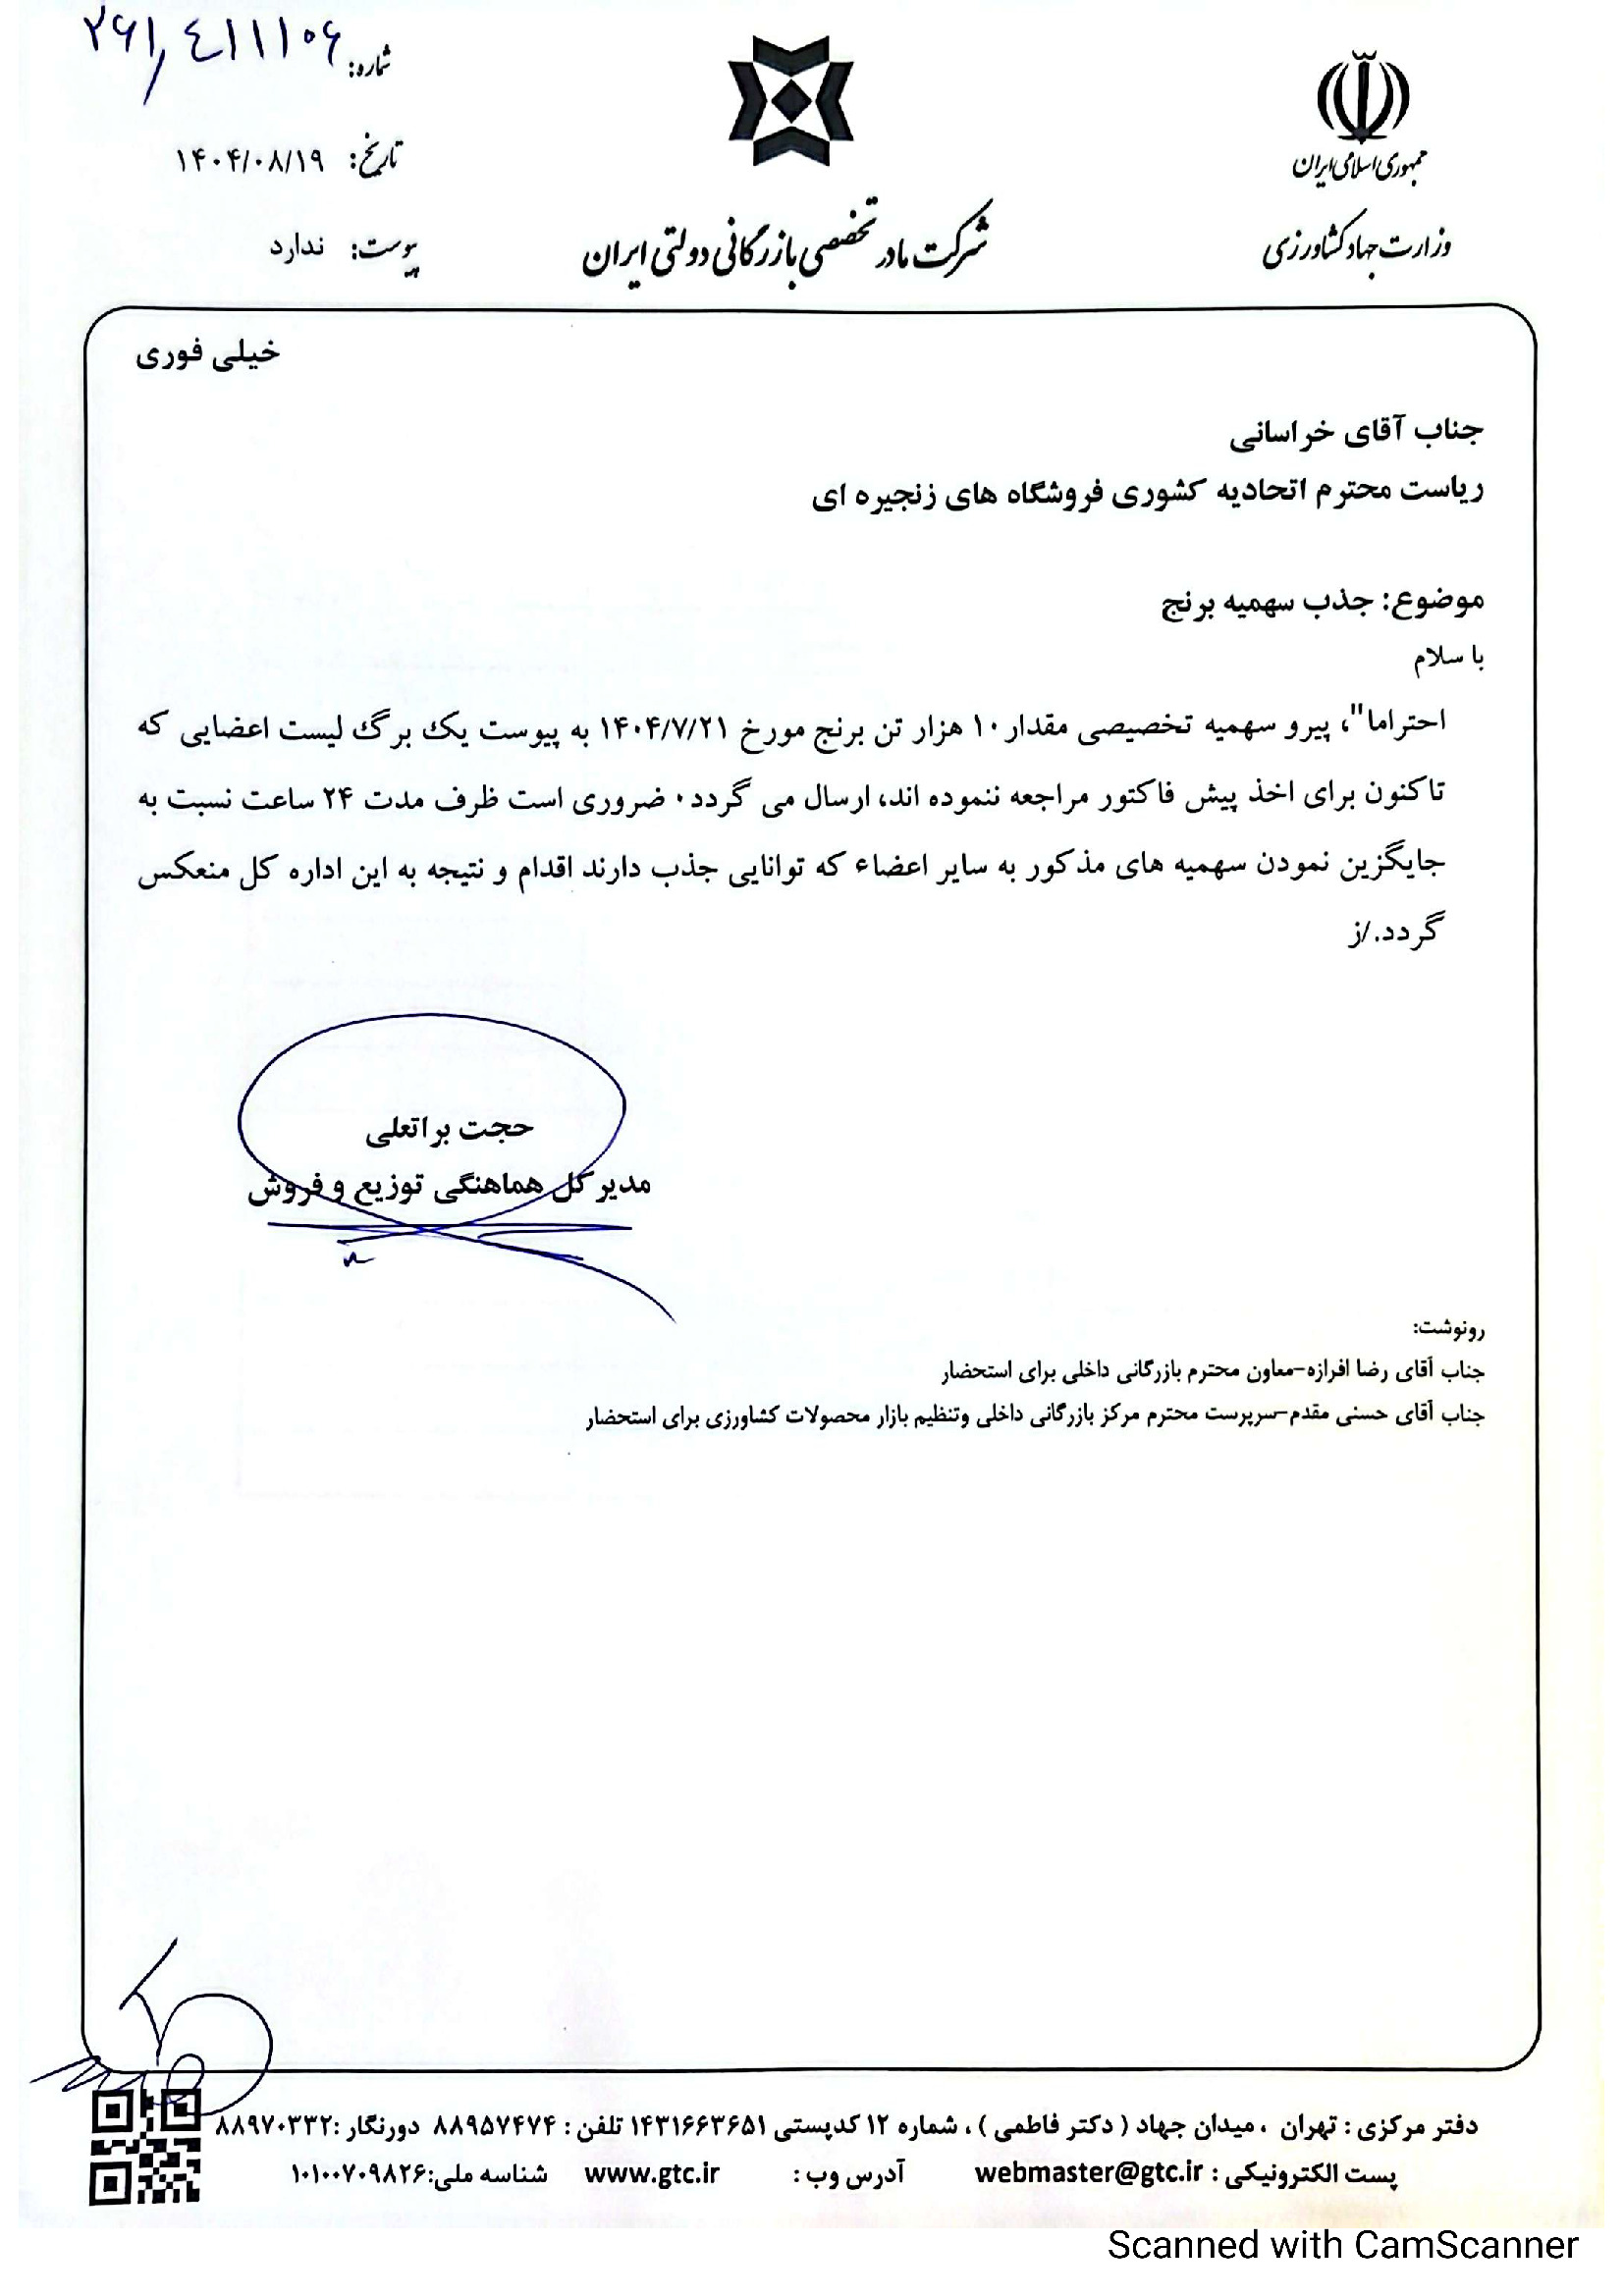 شماره: ۲۶۱٫٤۱۱۱۰۶
تاریخ: ۱۴۰۴/۰۸/۱۹
پیوست: ندارد
جمهوری اسلامی ایران
وزارت جهاد کشاورزی
شرکت مادر تخصصی بازرگانی دولتی ایران
خیلی فوری
جناب آقای خراسانی
ریاست محترم اتحادیه کشوری فروشگاه های زنجیره ای
موضوع: جذب سهمیه برنج
با سلام
احتراما"، پیرو سهمیه تخصیصی مقدار ۱۰ هزار تن برنج مورخ ۱۴۰۴/۷/۲۱ به پیوست یک برگ لیست اعضایی که
تاکنون برای اخذ پیش فاکتور مراجعه ننموده اند، ارسال می گردد۰ ضروری است ظرف مدت ۲۴ ساعت نسبت به
جایگزین نمودن سهمیه های مذکور به سایر اعضاء که توانایی جذب دارند اقدام و نتیجه به این اداره کل منعکس
گردد./ز
حجت براتعلی
مدیر کل هماهنگی توزیع و فروش
رونوشت:
جناب آقای رضا افرازه-معاون محترم بازرگانی داخلی برای استحضار
جناب آقای حسنی مقدم-سرپرست محترم مرکز بازرگانی داخلی وتنظیم بازار محصولات کشاورزی برای استحضار
دفتر مرکزی : تهران ، میدان جهاد ( دکتر فاطمی ) ، شماره ۱۲ کدپستی ۱۴۳۱۶۶۳۶۵۱ تلفن : ۸۸۹۵۷۴۷۴ دورنگار :۸۸۹۷۰۳۳۲
پست الکترونیکی : webmaster@gtc.ir آدرس وب : www.gtc.ir شناسه ملی:۱۰۱۰۰۷۰۹۸۲۶
Scanned with CamScanner